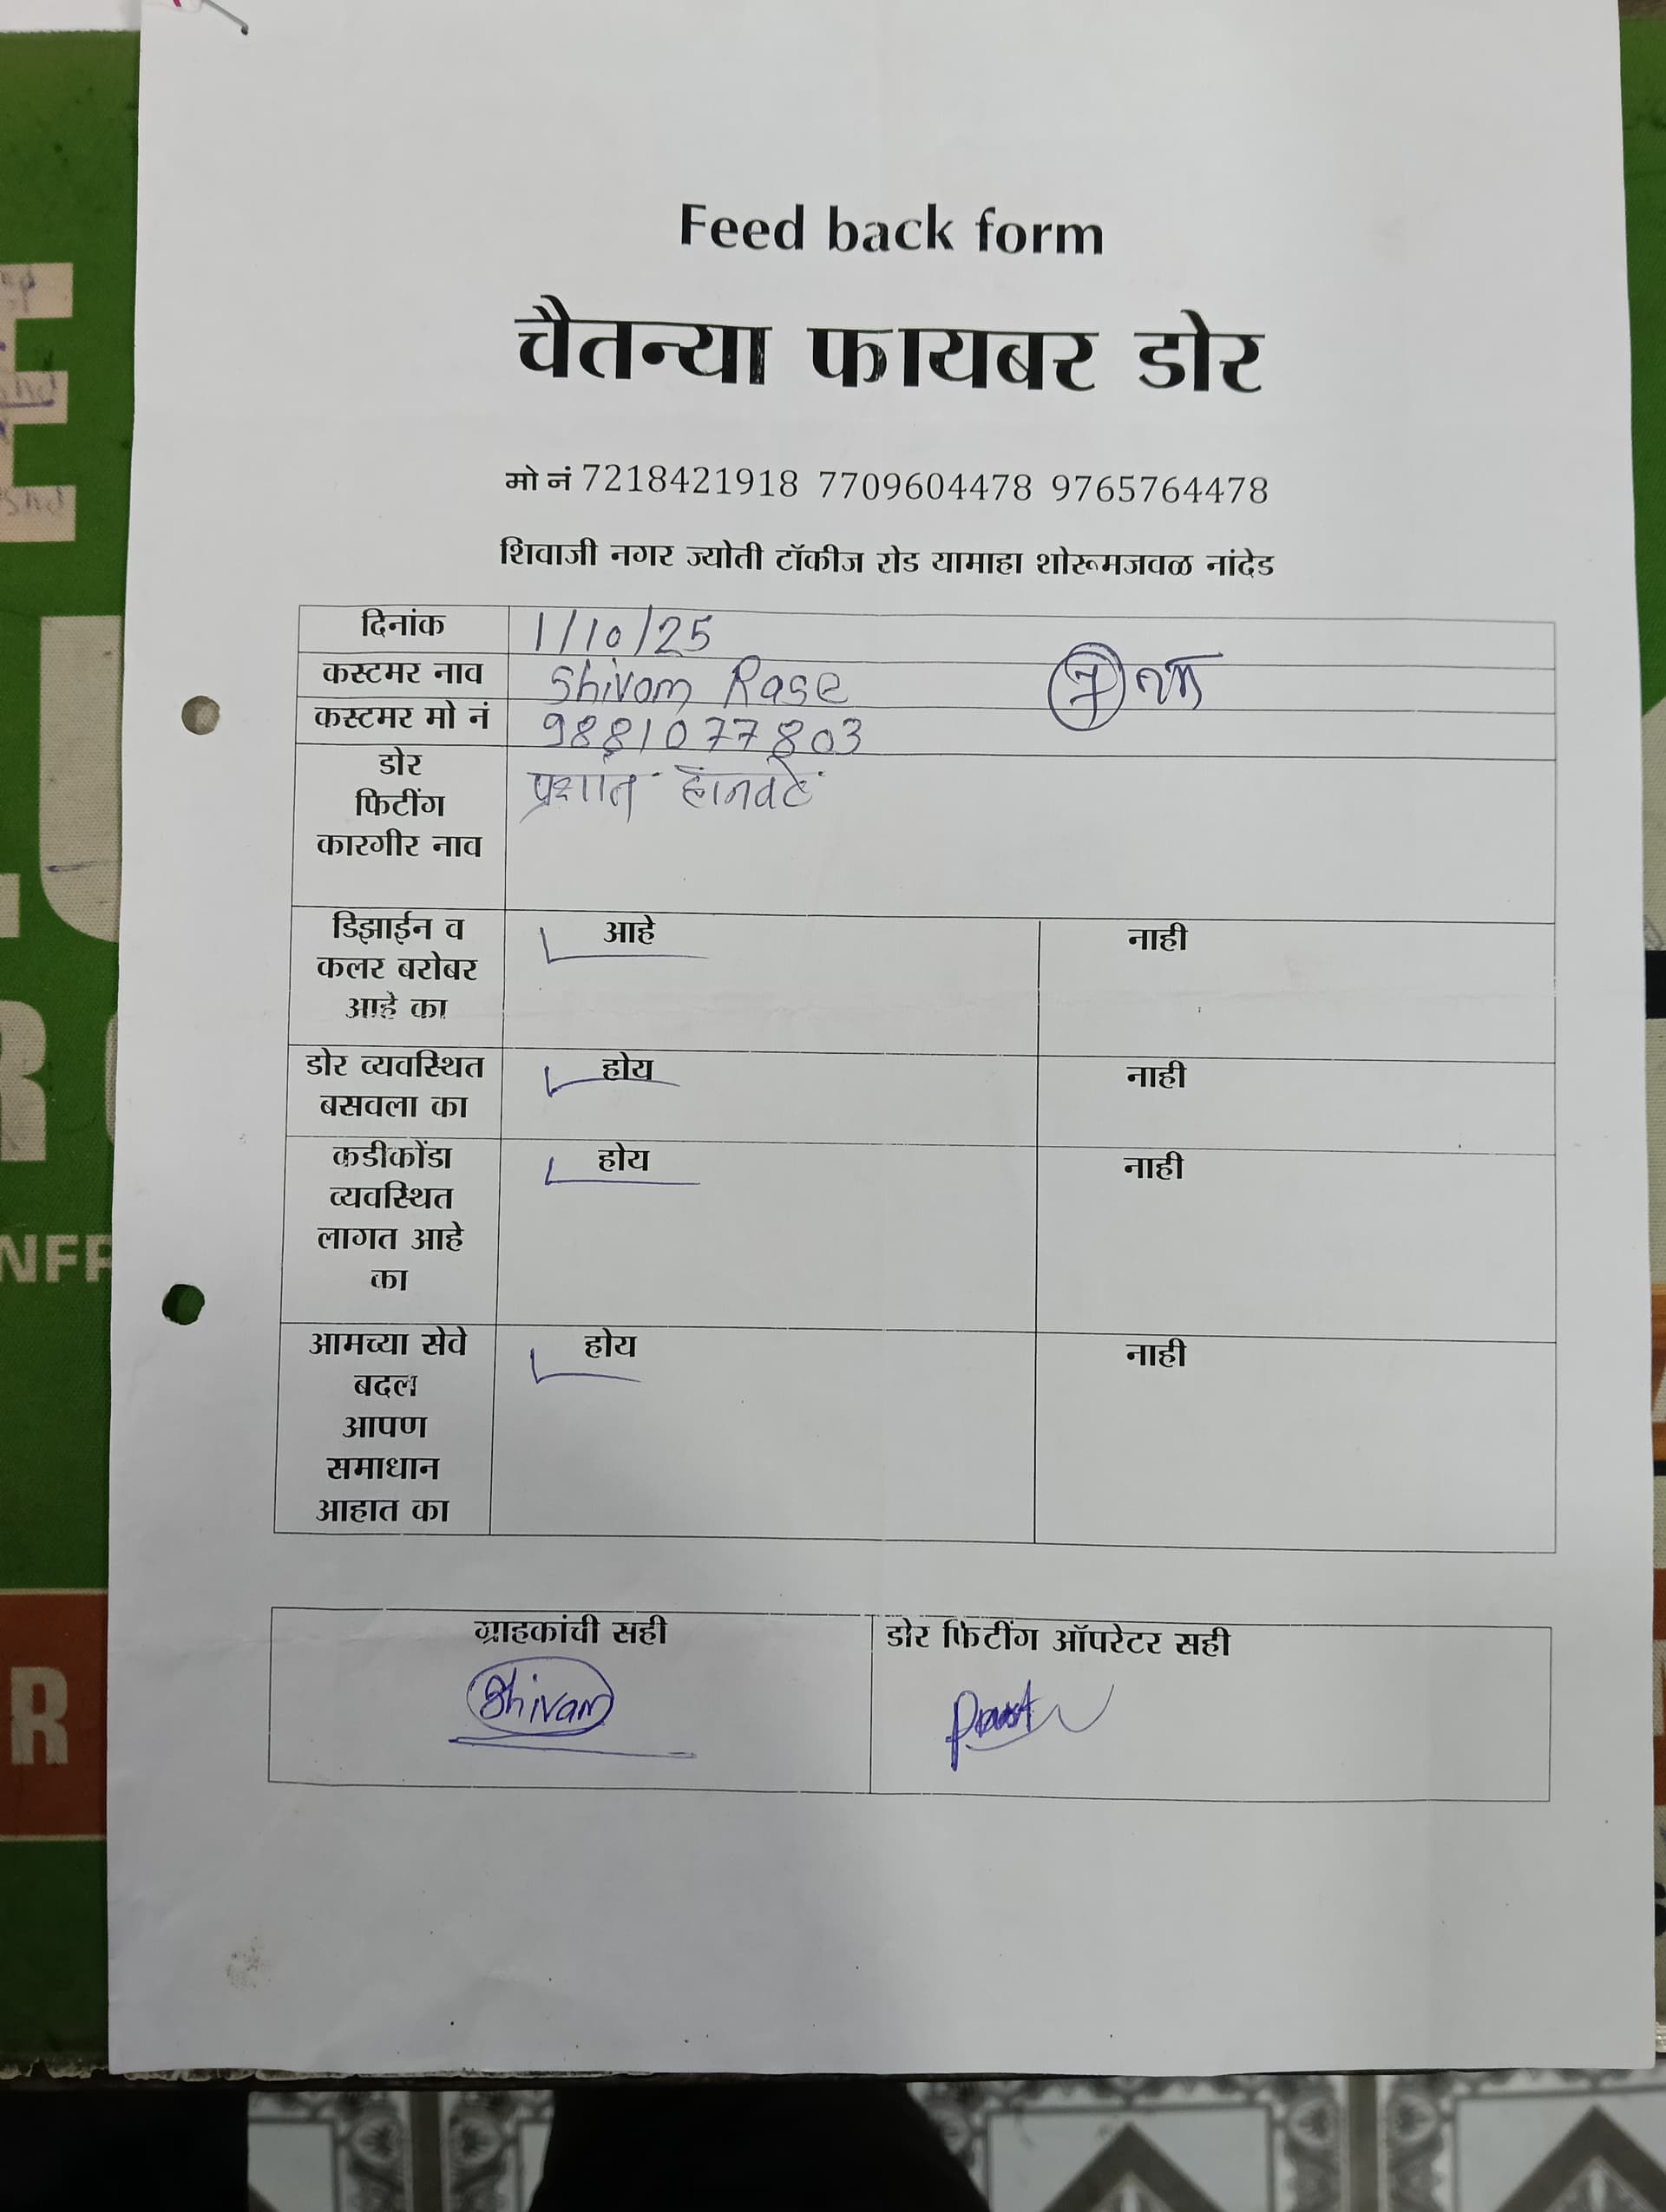 Feed back form
चैतन्या फायबर डोर
मो नं 7218421918 7709604478 9765764478
शिवाजी नगर ज्योती टॉकीज रोड यामाहा शोरूमजवळ नांदेड
दिनांक 1/10/25
कस्टमर नाव Shivam Rase 7 नग
कस्टमर मो नं 9881077803
डोर
फिटींग
कारगीर नाव
प्रशांत
डिझाईन व
कलर बरोबर
आहे का
आहे नाही
डोर व्यवस्थित
बसवला का
होय नाही
कडीकोंडा
व्यवस्थित
लागत आहे
का
होय नाही
आमच्या सेवे
बदल
आपण
समाधान
आहात का
होय नाही
ग्राहकांची सही डोर फिटींग ऑपरेटर सही
Shivam
E
R
NFR
R